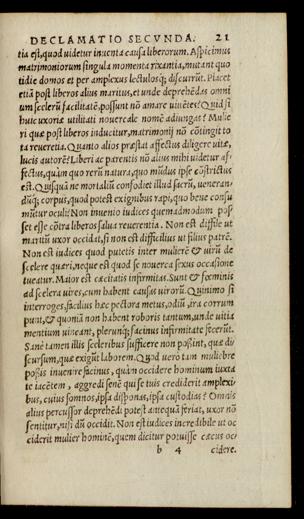 DECLAMATIO SECVNDA. 21
tia est, quod uidetur inuenta causa liberorum. Aspicimus
matrimoniorum singula momenta rixantia, mutant quo
tidie domos et per amplexus lectulosq; discurrūt. Placet
etiā post liberos alius maritus, et unde deprehēdas omni
um scelerū facilitatē, possunt nō amare uiuētes? Quid si
huic uxoriæ utilitati nouercale nomē adiungas? Mulie
ri quæ post liberos inducitur, matrimonij nō cōtingit to
ta reuerētia. Quanto alios præstat affectus diligere uitæ,
lucis autorē? Liberi ac parentis nō alius mihi uidetur af-
fectus, quàm quo rerū natura, quo mūdus ipse cōstrictus
est. Quisquā ne mortaliū confodiet illud sacrū, ueneran-
dūq; corpus, quod potest exignibus rapi, quo bene consu
mūtur oculi? Non inuenio iudices quemadmodum pos-
set esse cōtra liberos salua reuerentia. Non est diffile ut
maritū uxor occidat, si non est difficilius ut filius patrē.
Non est iudices quod putetis inter mulierē & uirū de
scelere quari, neque est quod se nouerca sexus occasione
tueatur. Maior est cæcitatis infirmitas. Sunt & fœminis
ad scelera uires, cum habent causas uirorū. Quinimo si
interroges, facilius hæc pectora metus, odiū, ira corrum
punt, & quoniā non habent roboris tantum, unde uitia
mentium uincant, plerunq; facinus infirmitate fecerūt.
Sanè tamen illis sceleribus sufficere non possint, quæ dis
scursum, quæ exigūt laborem. Quod uerò tam muliebre
possis inuenire facinus, quàm occidere hominum iuxta
te iacētem, aggredi senē qui se tuis crediderit amplexi-
bus, cuius somnos, ipsa disponas, ipsa custodias? Omnis
alius percussor deprehēdi potest antequā feriat, uxor nō
sentitur, nisi dū occidit. Non est iudices incredibile ut oc
ciderit mulier hominē, quem dicitur potuisse cæcus oc-
b 4 cidere.